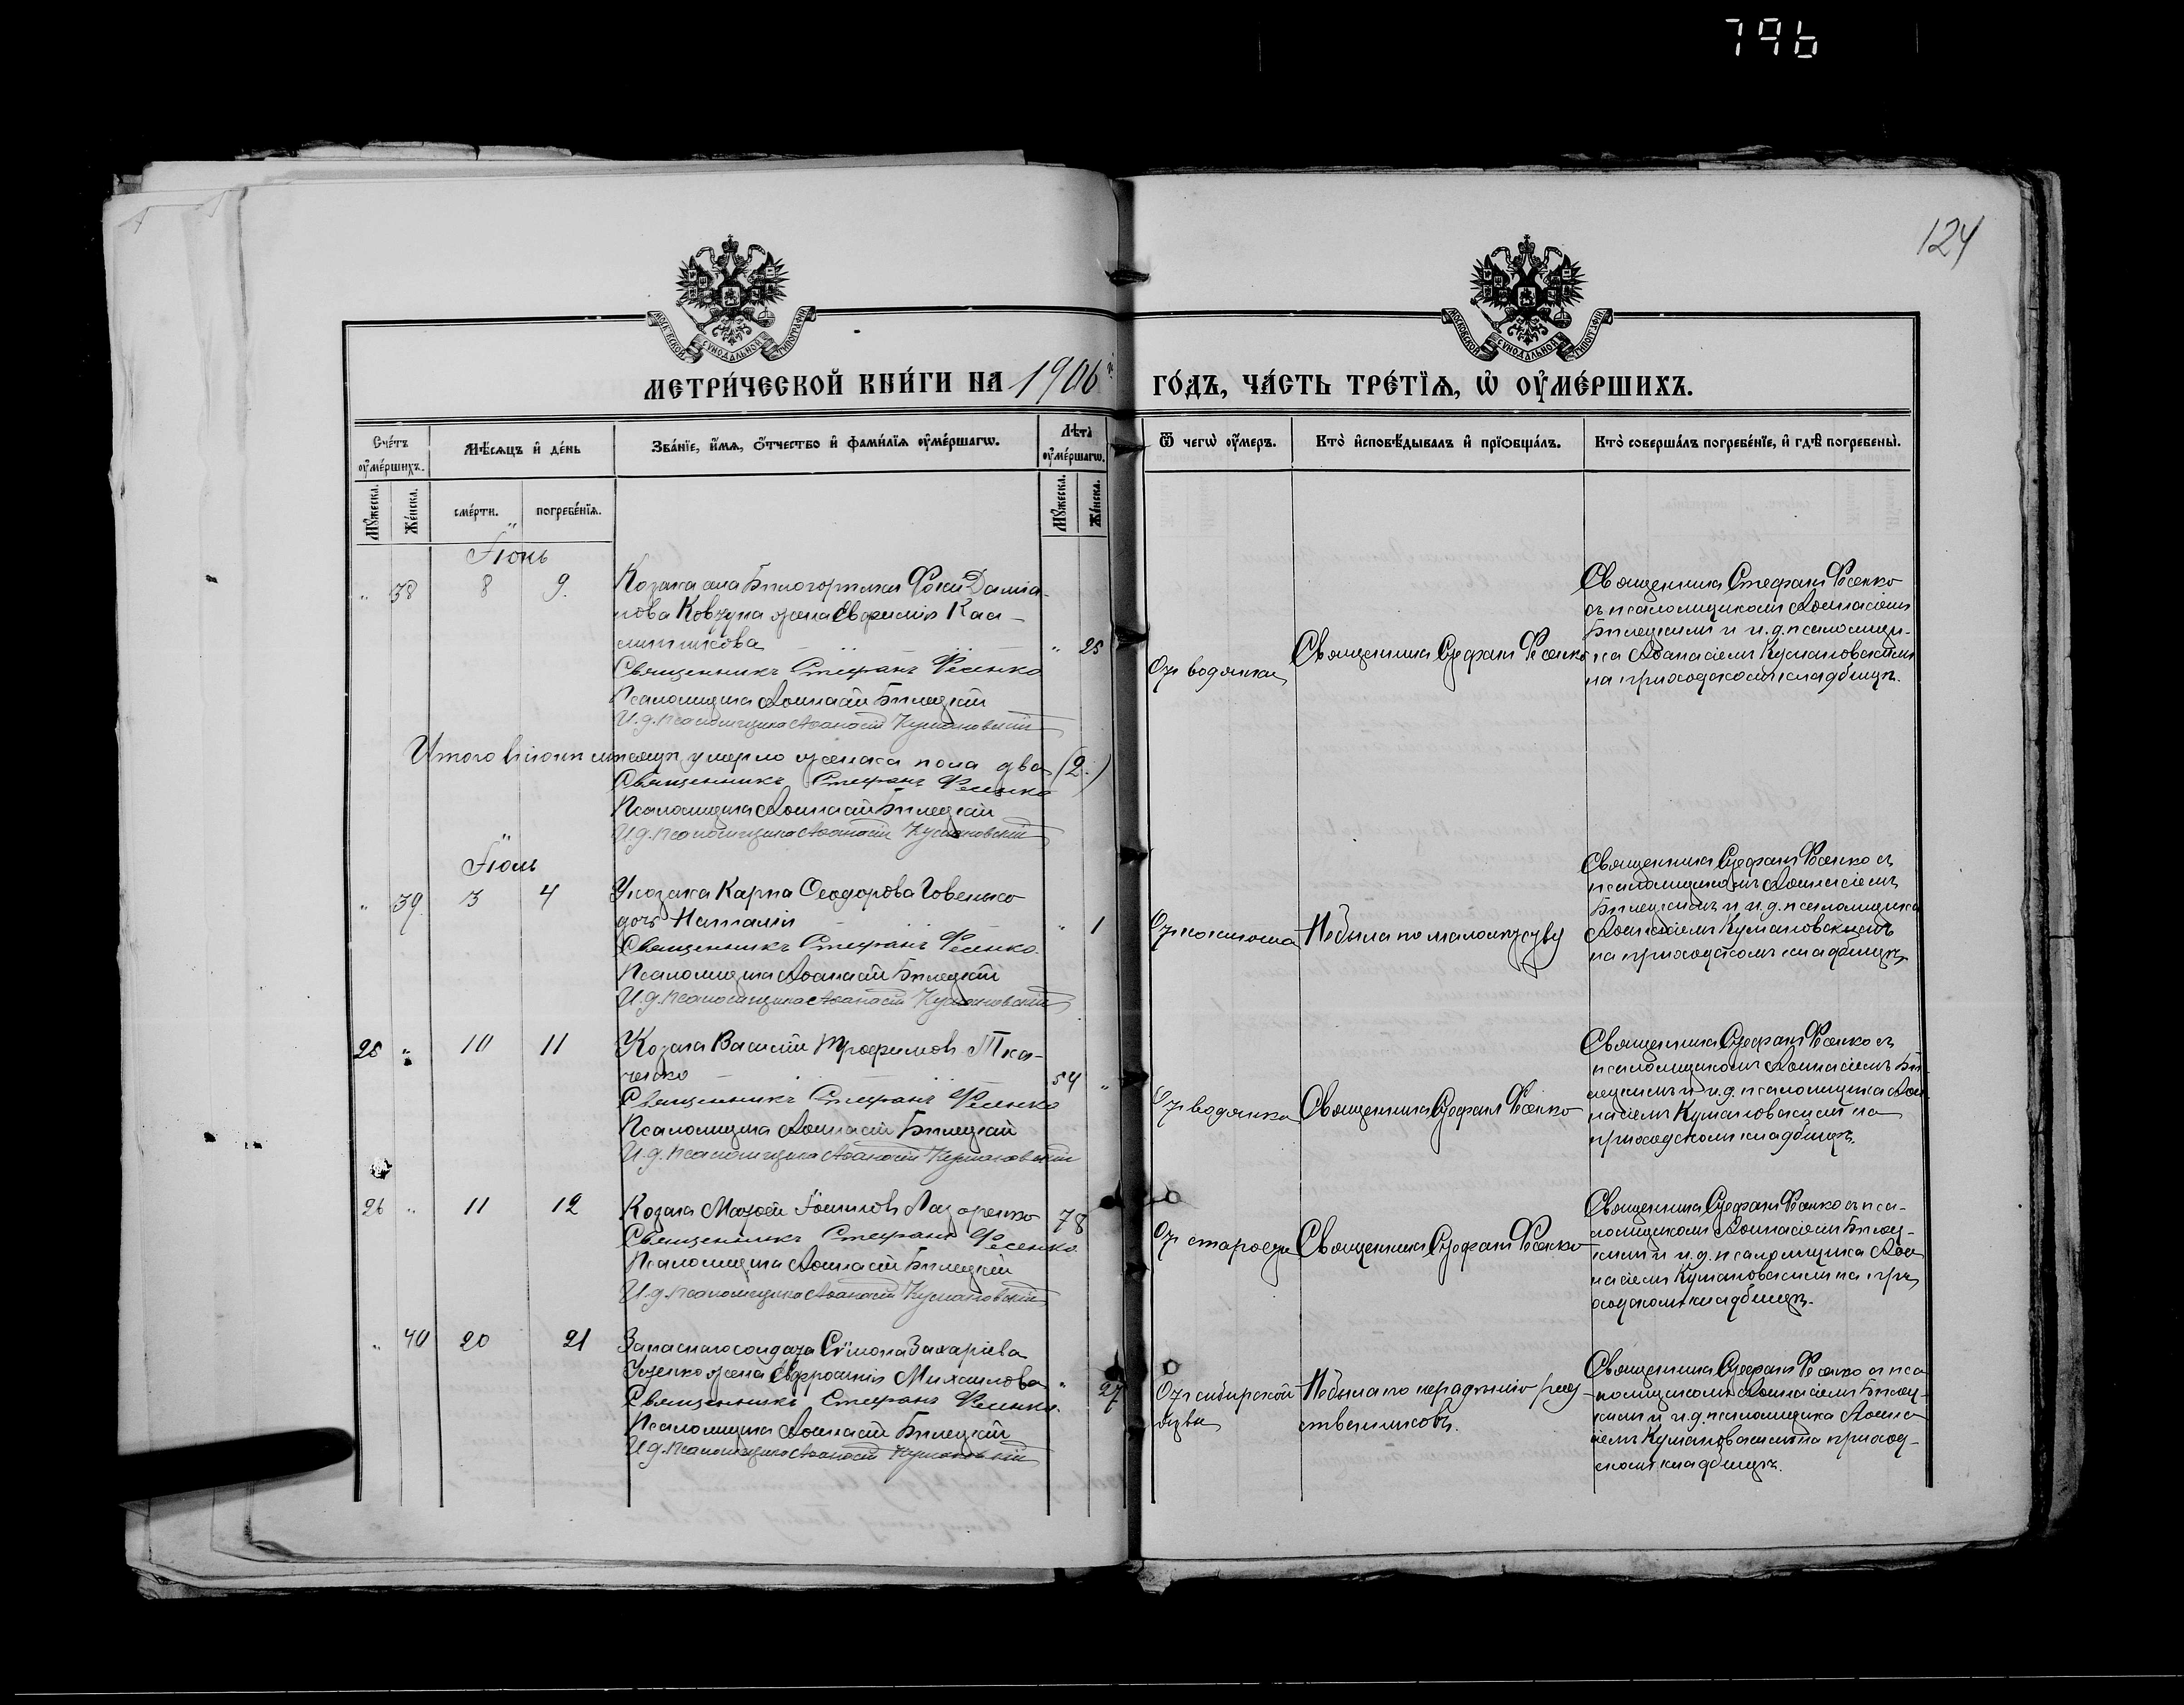 796
124
МОСКОВСКОЙ СѴНОДАЛЬНОЙ ТИПОГРАФІИ
МОСКОВСКОЙ СѴНОДАЛЬНОЙ ТИПОГРАФІИ
МЕТРИ́ЧЕСКОЙ КНИ́ГИ НА 1906й ГО́ДЪ, ЧА́СТЬ ТРЕ́ТЇѦ, Ѡ҆ ОУ҆МЕ́РШИХЪ.
Сче́тъ оу҆ме́ршихъ.
Мѣ́сѧцъ и҆ де́нь
Зва́нїе, и҆́мѧ, ѻ҆́тчество и҆ фами́лїѧ оу҆ме́ршагѡ.
Лѣ́та оу҆ме́ршагѡ.
Ѿ чегѡ̀ оу҆́меръ.
Кто̀ и҆сповѣ́дывалъ и҆ прїѡбща́лъ.
Кто̀ соверша́лъ погребе́нїе, и҆ гдѣ̀ погребены̀.
Мꙋ́жеска.
Же́нска.
сме́рти.
погребе́нїѧ.
Мꙋ́жеска.
Же́нска.
Іюнь
" 38 8 9.
Козака села Фоки Даміа-
нова Ковтуна жена Евфимія
" 25
Священникъ Стефанъ Фесенко
Псаломщикъ Аѳанасій Билецкій
И.д. псаломщика Аѳанасій Кумановскій
Отъ водянки
Священникъ Стефанъ Фесенко
Священникъ Стефанъ Фесенко
съ псаломщикомъ Аѳанасіемъ
Билецкимъ и и.д. псаломщи-
ка Аѳанасіемъ Кумановскимъ
на приходскомъ кладбищѣ.
Итого въ іюнѣ мѣсяцѣ умерло женска пола два (2.)
Священникъ Стефанъ Фесенко
Псаломщикъ Аѳанасій Билецкій
И.д. псаломщика Аѳанасій Кумановскій
Іюль
" 39. 3 4
У козака Карпа Ѳеодорова Говенько
дочь Наталія
" 1
Священникъ Стефанъ Фесенко.
Псаломщикъ Аѳанасій Билецкій
И.д. псаломщика Аѳанасій Кумановскій
Отъ поноса
Не была по малолѣтству
Священникъ Стефанъ Фесенко съ
псаломщикомъ Аѳанасіемъ
Билецкимъ и и.д. псаломщика
Аѳанасіемъ Кумановскимъ
на приходскомъ кладбищѣ
25 " 10 11
Козакъ Василій Трофимовъ Тка-
ченко
54 "
Священникъ Стефанъ Фесенко
Псаломщикъ Аѳанасій Билецкій
И.д. псаломщика Аѳанасій Кумановскій
Отъ водянки
Священникъ Стефанъ Фесенко
Священникъ Стефанъ Фесенко съ
псаломщикомъ Аѳанасіемъ Би-
лецкимъ и и.д. псаломщика Аѳа-
насіемъ Кумановскимъ на
приходскомъ кладбищѣ.
26 " 11 12
Козакъ Лазоренко
78
Священникъ Стефанъ Фесенко.
Псаломщикъ Аѳанасій Билецкій
И.д. псаломщика Аѳанасій Кумановскій
Отъ старости
Священникъ Стефанъ Фесенко
Священникъ Стефанъ Фесенко съ пса-
ломщикомъ Аѳанасіемъ Билец-
кимъ и и.д. псаломщика Аѳа-
насіемъ Кумановскимъ на при-
ходскомъ кладбищѣ.
" 40 20 21
Запаснаго солдата Сѵмона Захаріева
жена Евфросинія Михаилова
" 27
Священникъ Стефанъ Фесенко.
Псаломщикъ Аѳанасій Билецкій
И.д. псаломщика Аѳанасій Кумановскій
Отъ сибирской
язвы
Не была по нерадѣнію род-
ственниковъ.
Священникъ Стефанъ Фесенко съ пса-
ломщикомъ Аѳанасіемъ Билец-
кимъ и и.д. псаломщика Аѳана-
сіемъ Кумановскимъ на приход-
скомъ кладбищѣ.